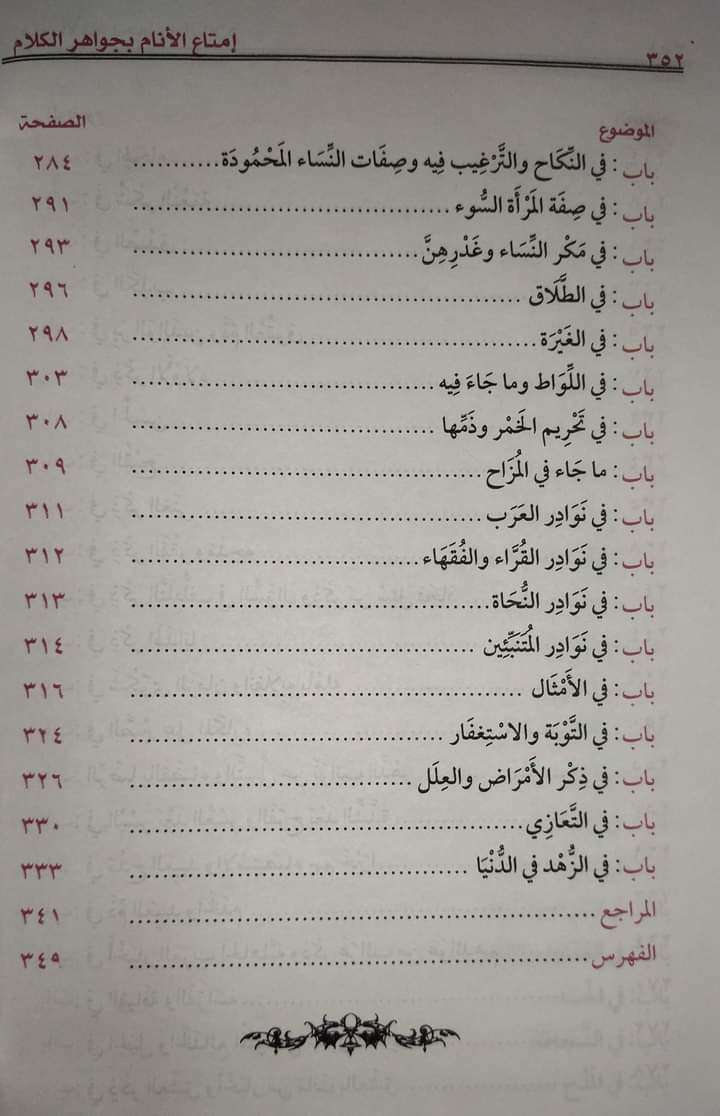 إمتاع الأنام بجواهر الكلام ٣٥٢
الموضوع الصفحة
باب: في النِّكَاح والتَّرْغِيب فِيه وصِفَات النِّسَاء المَحْمُودَة........... ٢٨٤
باب: في صِفَة المَرْأَة السُّوء........................................ ٢٩١
باب: في مَكْر النِّسَاء وغَدْرِهِنَّ.................................... ٢٩٣
باب: في الطَّلَاق ................................................. ٢٩٦
باب: في الغَيْرَة................................................... ٢٩٨
باب: في اللِّوَاط وما جَاءَ فِيه ...................................... ٣٠٣
باب: في تَحْرِيم الخَمْر وذَمِّها ...................................... ٣٠٨
باب: ما جَاء في المُزَاح ........................................... ٣٠٩
باب: في نَوَادِر العَرَب ............................................ ٣١١
باب: في نَوَادِر القُرَّاء والفُقَهَاء.................................... ٣١٢
باب: في نَوَادِر النُّحَاة............................................ ٣١٣
باب: في نَوَادِر المُتَنَبِّئِين .......................................... ٣١٤
باب: في الأَمْثَال ................................................. ٣١٦
باب: في التَّوْبَة والاسْتِغفَار ....................................... ٣٢٤
باب: في ذِكْر الأَمْرَاض والعِلَل .................................... ٣٢٦
باب: في التَّعَازِي................................................. ٣٣٠
باب: في الزُّهْد في الدُّنْيَا .......................................... ٣٣٣
المراجع .......................................................... ٣٤١
الفهرس.......................................................... ٣٤٩